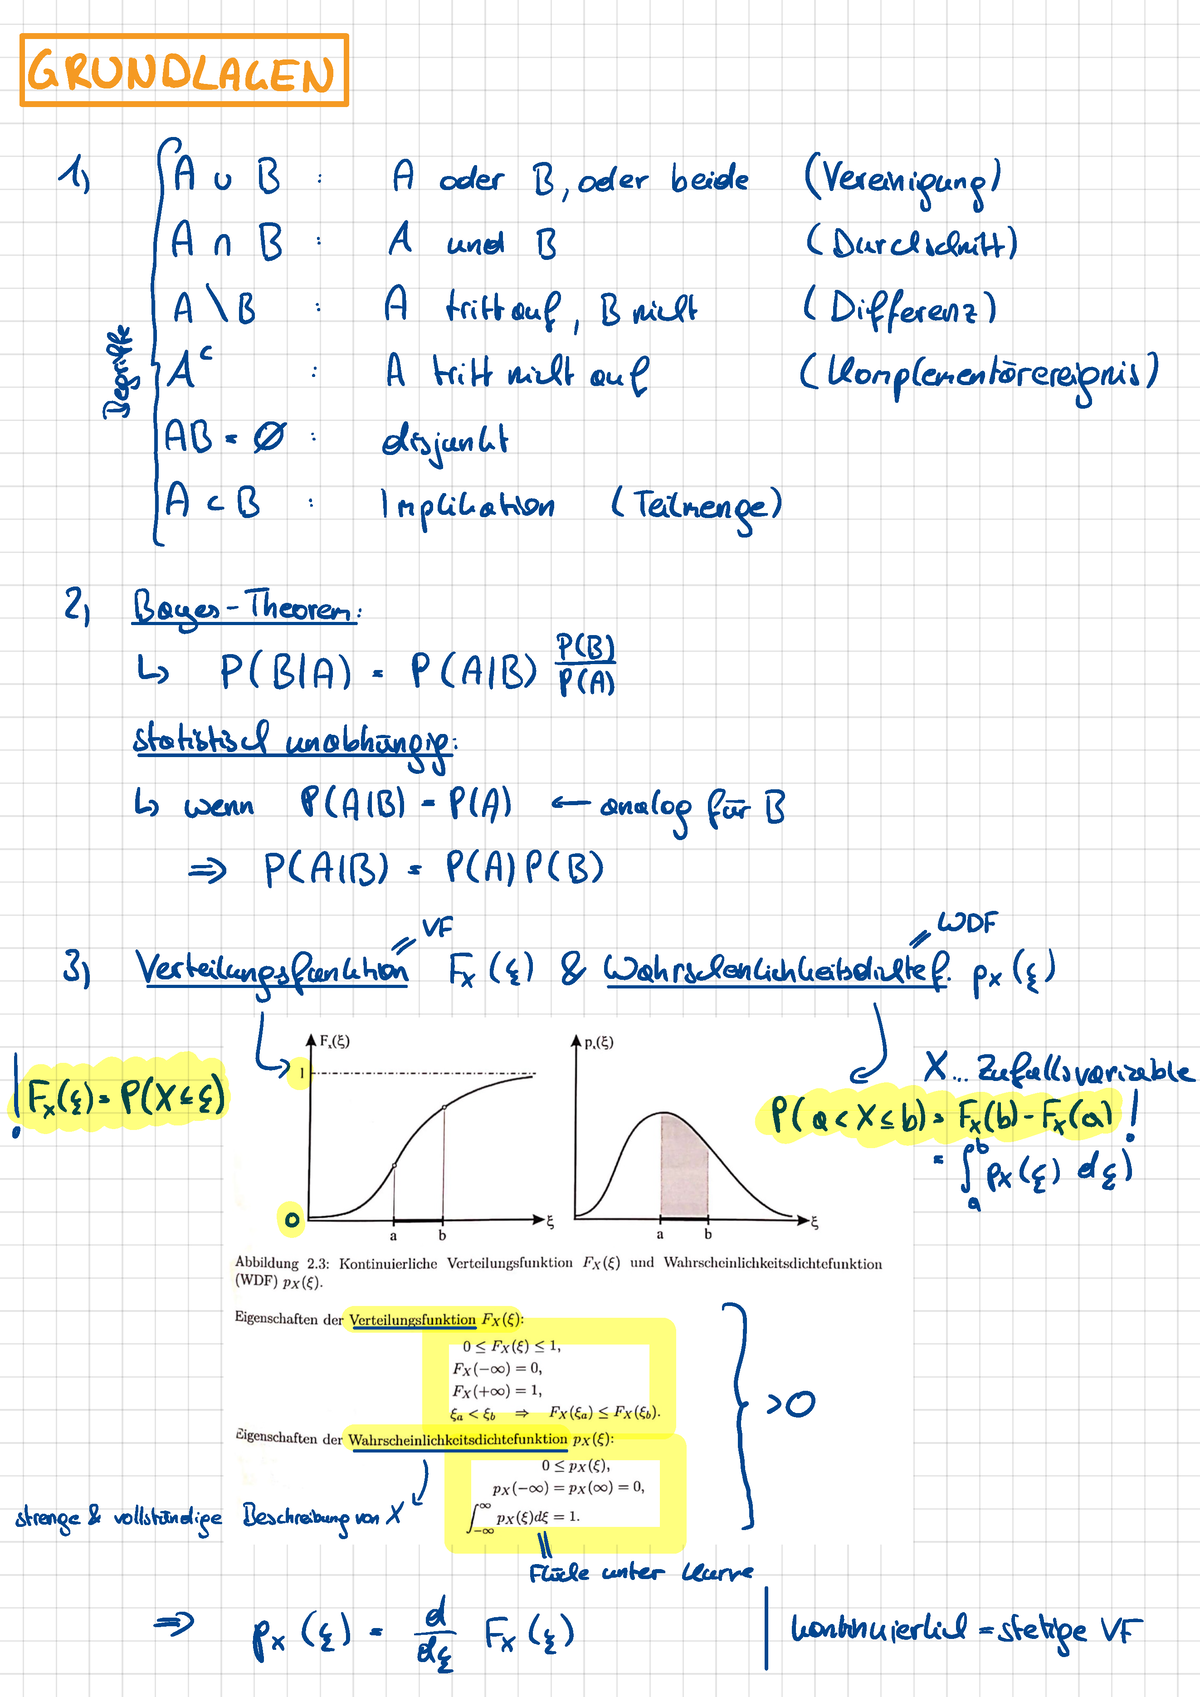 GRUNDLAGEN
1) A ∪ B : A oder B, oder beide (Vereinigung)
A ∩ B : A und B (Durchschnitt)
A \ B : A tritt auf, B nicht (Differenz)
Begriffe
A^c : A tritt nicht auf (Komplementärereignis)
AB = ∅ : disjunkt
A ⊂ B : Implikation (Teilmenge)
2) Bayes-Theorem:
↳ P(B|A) = P(A|B) P(B)/P(A)
statistisch unabhängig:
↳ wenn P(A|B) = P(A) ← analog für B
⇒ P(A|B) = P(A)P(B)
VF WDF
3) Verteilungsfunktion F_X(ξ) & Wahrscheinlichkeitsdichtef. p_X(ξ)
F_x(ξ) p_x(ξ)
1
X... Zufallsvariable
! F_X(ξ) = P(X ≤ ξ)
P(a < X ≤ b) = F_X(b) - F_X(a) !
= ∫_a^b p_X(ξ) dξ)
0 ξ ξ
a b a b
Abbildung 2.3: Kontinuierliche Verteilungsfunktion F_X(ξ) und Wahrscheinlichkeitsdichtefunktion
(WDF) p_X(ξ).
Eigenschaften der Verteilungsfunktion F_X(ξ):
0 ≤ F_X(ξ) ≤ 1,
F_X(−∞) = 0,
F_X(+∞) = 1,
>0
ξ_a < ξ_b ⇒ F_X(ξ_a) ≤ F_X(ξ_b).
Eigenschaften der Wahrscheinlichkeitsdichtefunktion p_X(ξ):
0 ≤ p_X(ξ),
p_X(−∞) = p_X(∞) = 0,
strenge & vollständige Beschreibung von X
∫_{−∞}^{∞} p_X(ξ)dξ = 1.
Fläche unter Kurve
⇒ p_X(ξ) = d/dξ F_X(ξ)
kontinuierlich = stetige VF